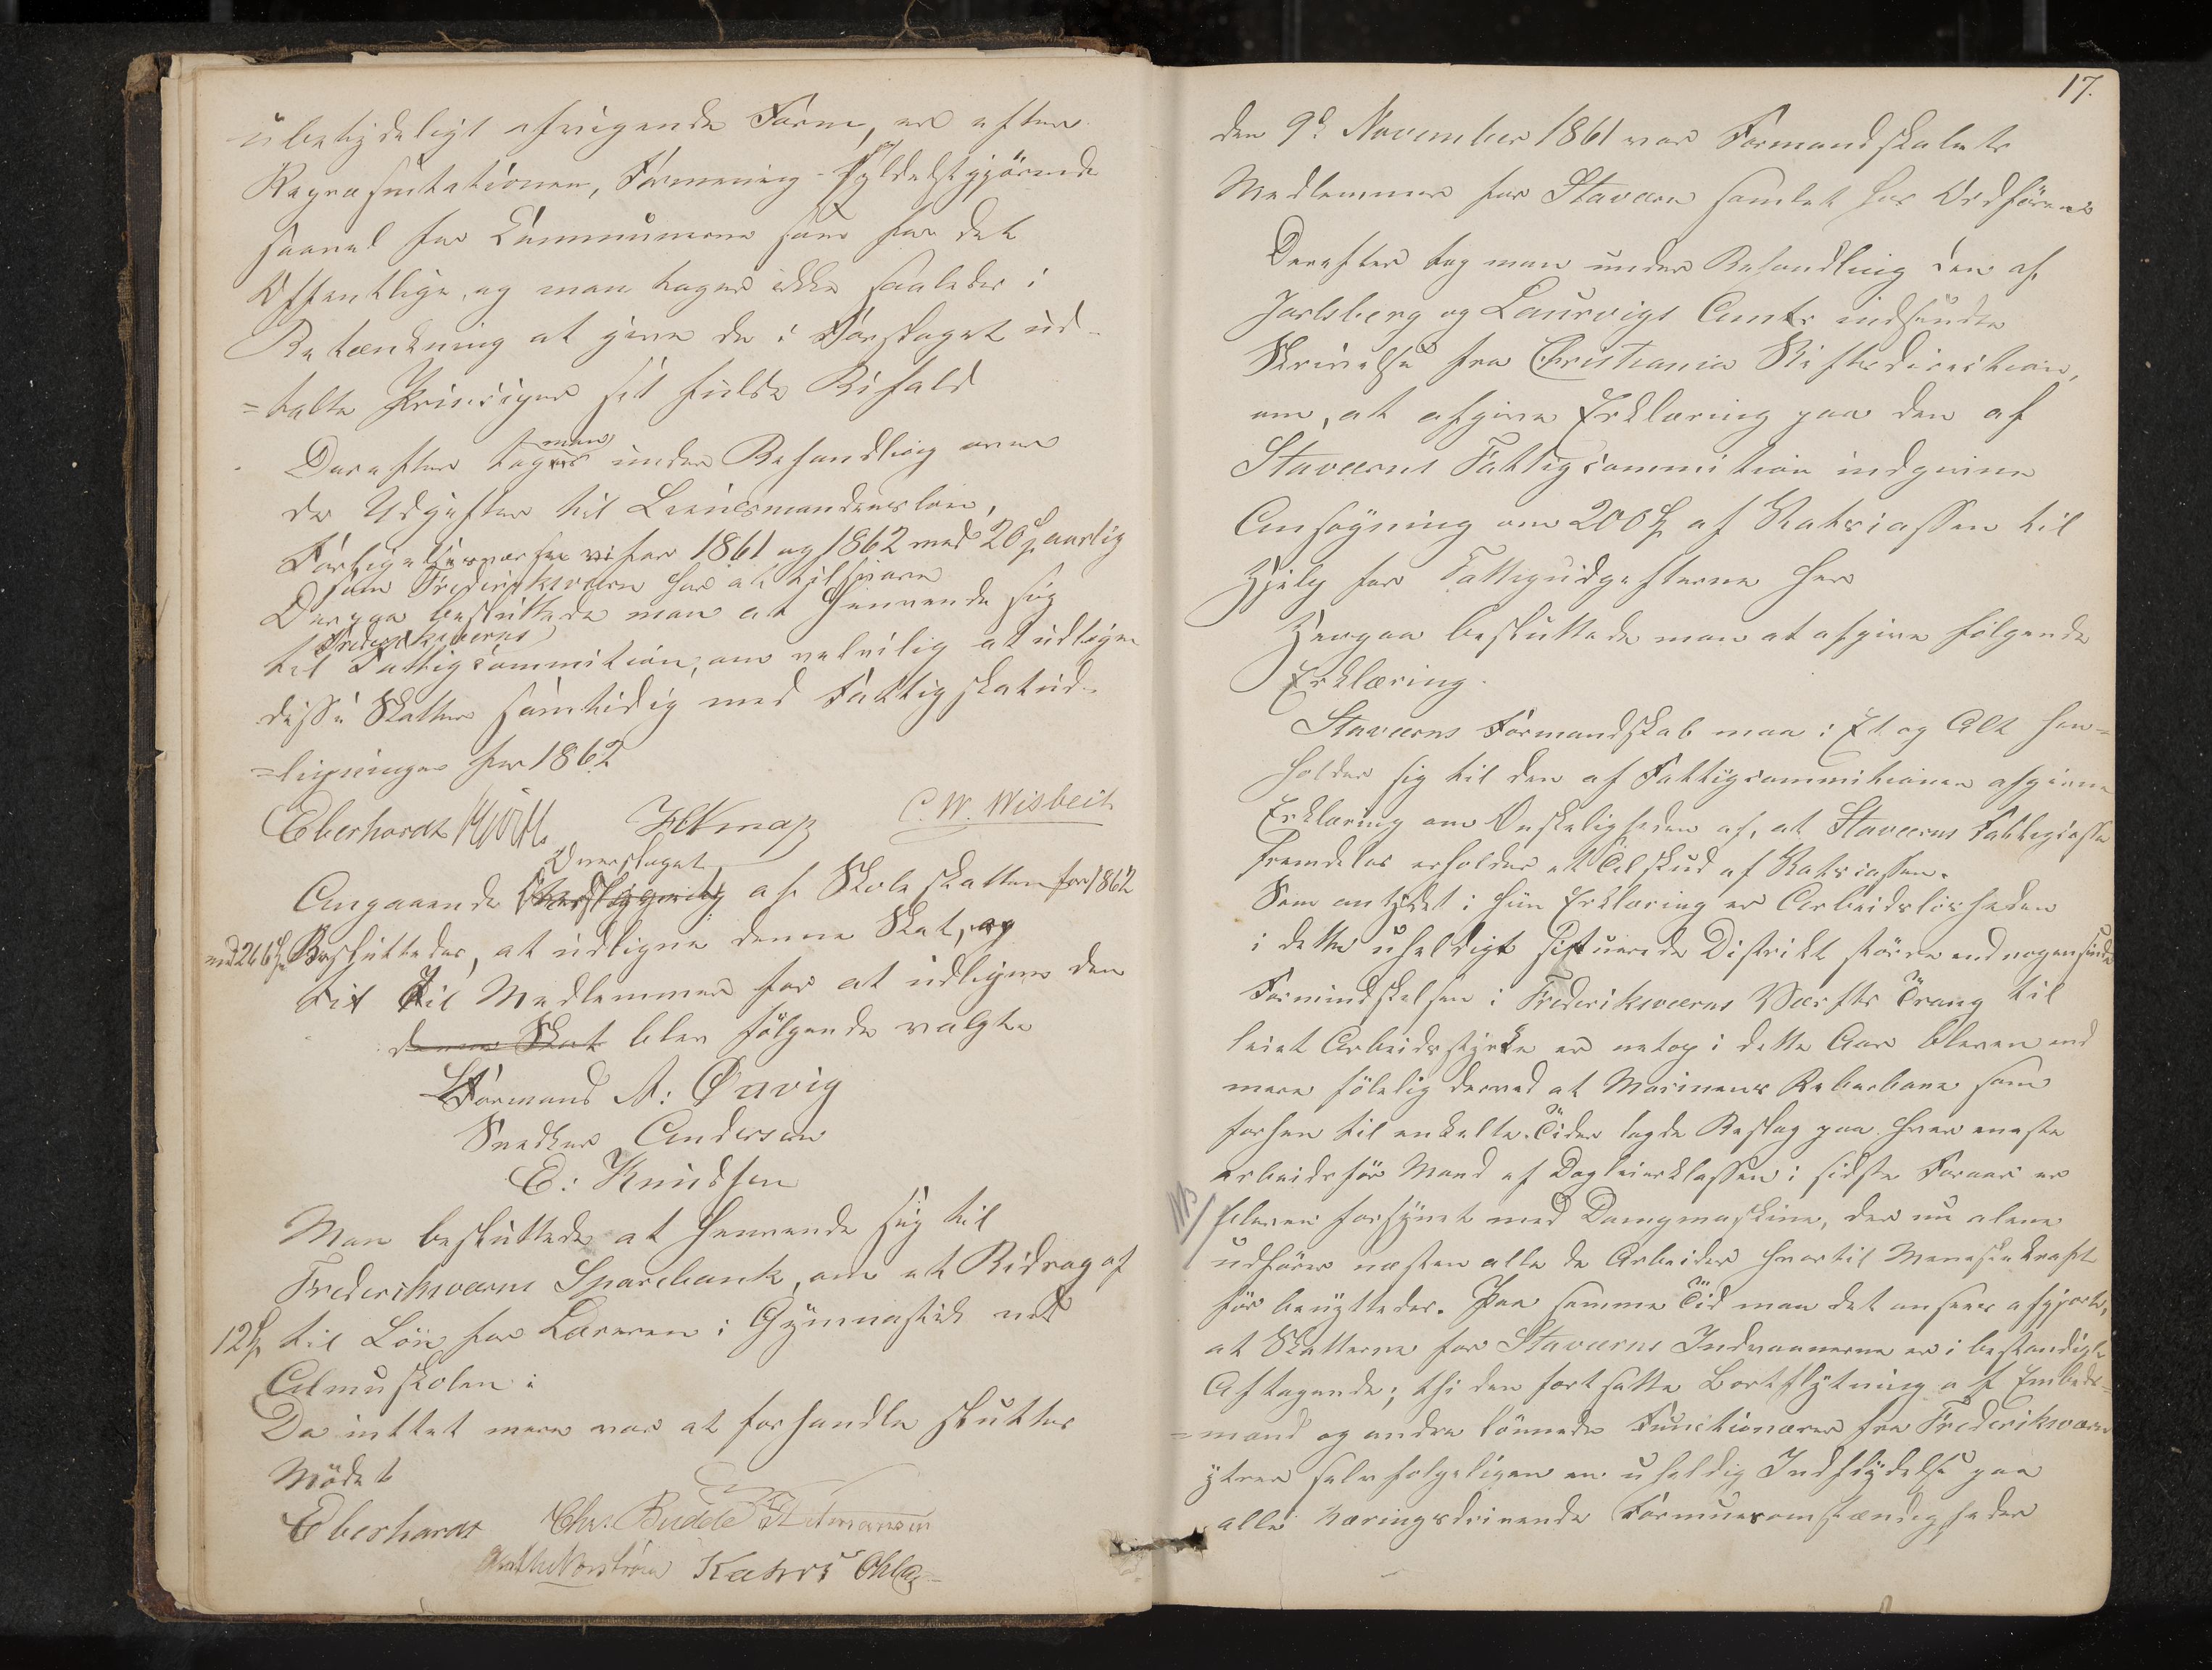 ubetydeligt afvigende Form, er efter
Repræsentationen, Formening fyldestgjörende
saavel for Communerne som for det
Offentlige, og man tager ikke saaledes i
Betænkning at give de i Forslaget ud-
=talte Principer sit fulde Bifald
Derefter tog man under Behandling
de Udgifter til Leinsmandensløn,
for 1861 og 1862 med 20 aarlig
som Frederiksværn har at tilsvare
Derpaa besluttede man at henvende sig
Frederiksværns
til Fattigcommition, om velvilig at udligne
disse Skatter samtidig med Fattigskatud-
=ligninger for 1862
Eberhardt C. W. Wisbech
Overslaget
Angaaende af Skoleskatten for 1862
med 266 Besluttedes, at udligne denne Skat, og
Til Medlemmer for at udligne den
denne Skat blev fölgende valgte
Formand A: Ørvig
Snedker Andersen
E: Knudsen
Man besluttede at henvende sig til
Frederiksværns Sparebank, om et Bidrag af
12 til Lön for Læreren i Gymnastik ved
Almuskolen i
Da inttet mere var at forhandle sluttes
Mödet
Eberhardt Chr. Budde
17.
den 9d November 1861 var Formandskabets
Medlemmer for Stavern samlet hos Ordförer
Derefter tog man under Behandling den af
Jarlsberg og Laurvigs Amts indsendte
Skrivelse fra Christiania Stiftsdirection,
om, at afgive Erklæring paa den af
Staverns Fattigcommition indgivne
Ansøgning om 200 af Statscassen til
Hjelp for Fattigudgifterne her
Herpaa besluttede man at afgive følgende
Erklæring.
Staverns Formandskab maa i Et og Alt hen=
holder sig til den af Fattigcommitionen afgivne
Erklæring om Ønskeligheden af, at Staverns Fattigcasse
fremdeles erholder et Tilskud af Statscassen.
Som antydet i hiin Erklæring er Arbeidslösheden
i dette uheldigt situerede Distrikt större end nogensinde
Formindskelsen i Frederiksværns Værfts Trang til
leiet Arbeidsstyrke er netop i dette Aar bleven end
mere fölelig derved at Marinens Reberbane som
forhen til enkelte Tider lagde Beslag paa hver eneste
arbeidsför Mand af Dagleierklassen i sidste Foraar er
bleven forsynet med Dampmaskine, der nu alene
udförer næsten alle de Arbeider hvortil Meneskekraft
för benyttedes. Paa samme Tid maa det ansees afgjort,
at Skatterne for Staverns Indvaanerne er i bestandigt
Aftagende; thi den fortsatte Bortflytning af Embeds=
=mænd og andre lönnede Functionærer fra Frederiksværn
ytrer selvfolgeligen en uheldig Indflydelse paa
alle Næringsdrivende Formuesomstændigheder